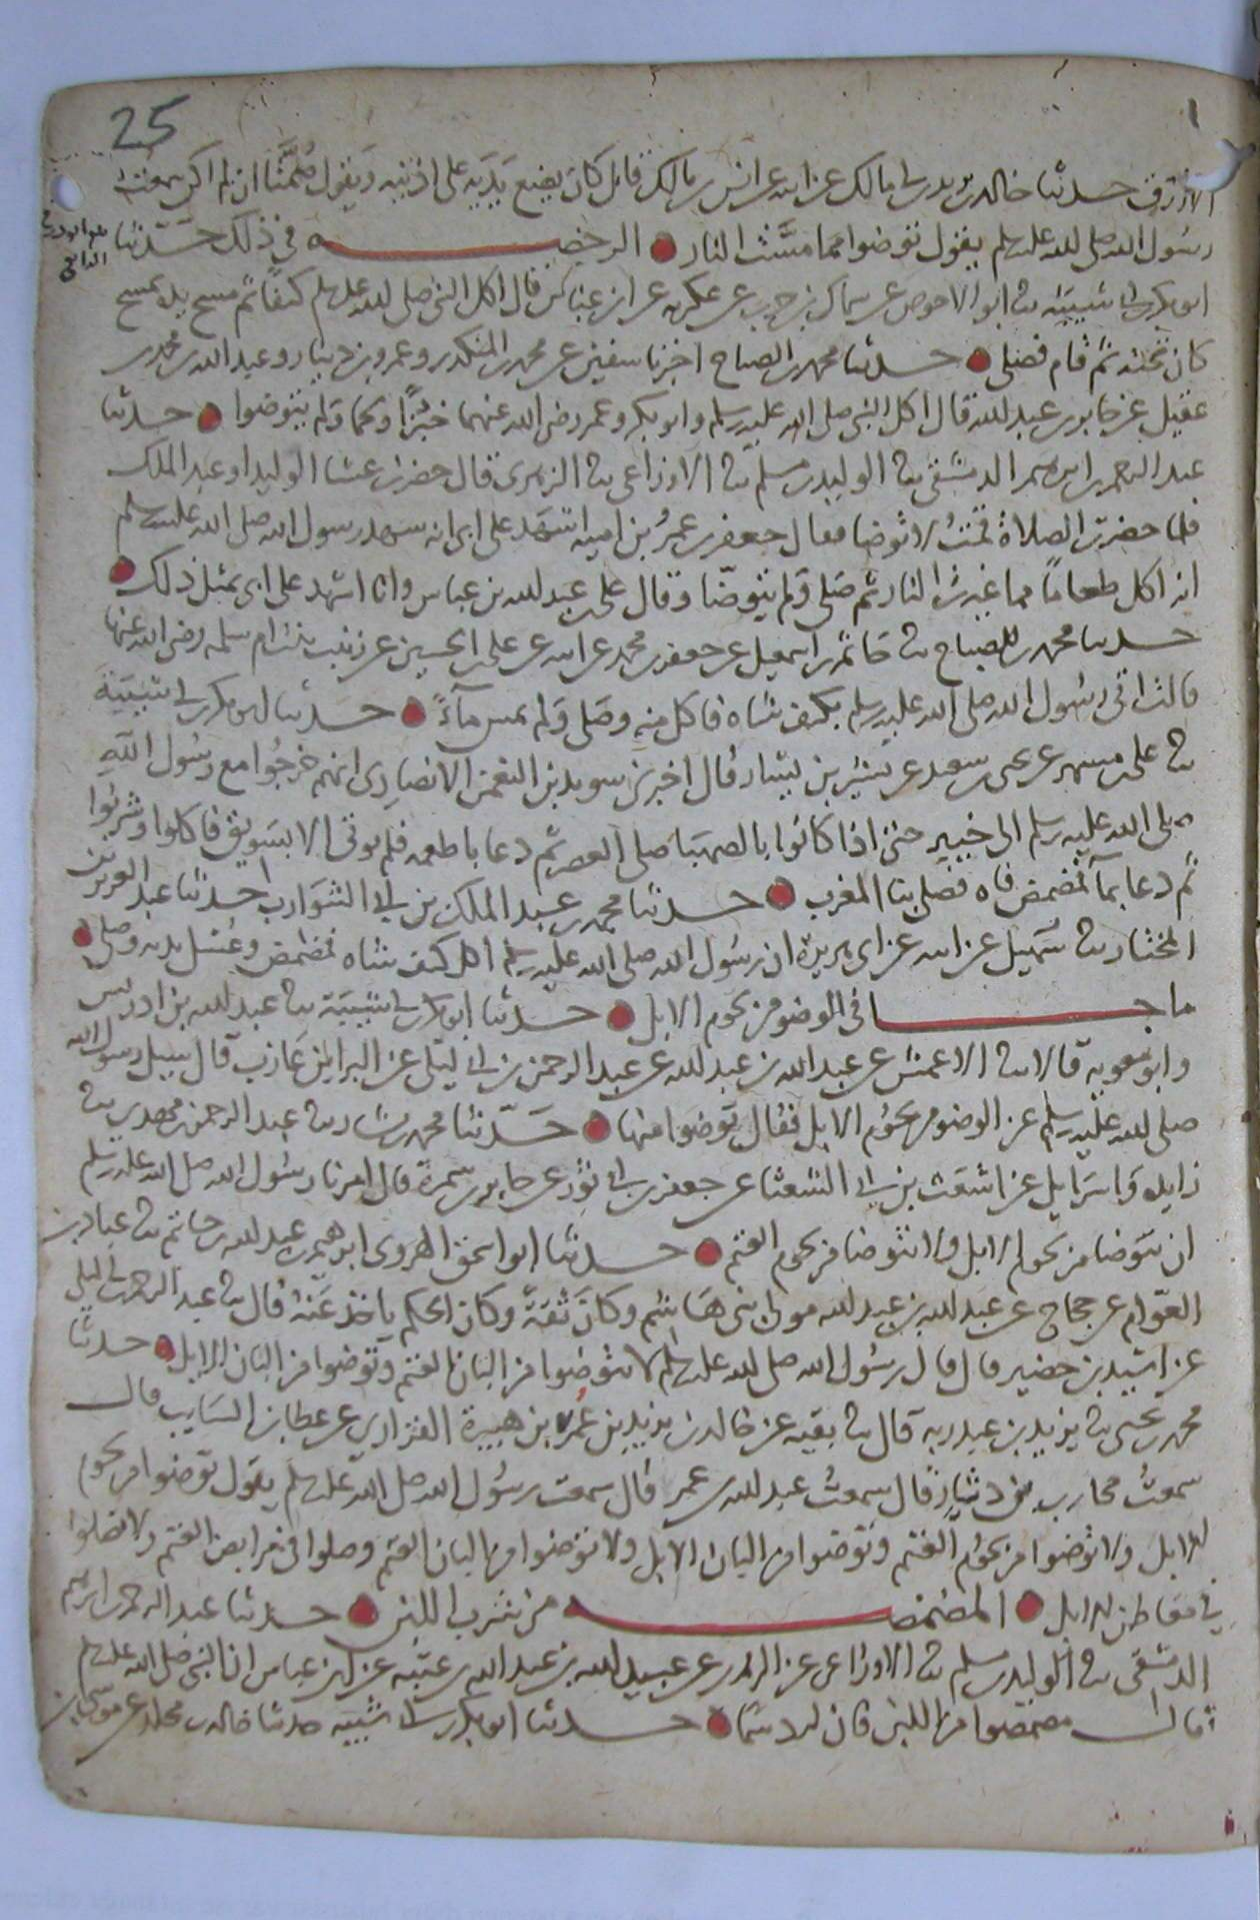 25
الازرق حدثنا خالد بن يزيد بن ابي مالك عن ابيه عن انس بن مالك قال كان يضع يديه على اذنيه ويقول صُمَّتا ان لم اكن سمعت
رسول الله صلى الله عليه وسلم يقول توضوا مما مسَّت النار ● الرخصـــه في ذلك حدثنا
ابو بكر بن ابي شيبة ثنا ابو الاحوص عن سماك بن حرب عن عكرمه عن ابن عباس قال اكل النبي صلى الله عليه وسلم كتفًا ثم مسح يده بمسح
كان تحته ثم قام فصلى ● حدثنا محمد بن الصباح اخبرنا سفين عن محمد بن المنكدر وعمرو بن دينار وعبد الله بن محمد بن
عقيل عن جابر بن عبد الله قال اكل النبي صلى الله عليه وسلم وابو بكر وعمر رضي الله عنهما خبزًا ولحما ولم يتوضوا ● حدثنا
عبد الرحمن بن ابراهيم الدمشقي ثنا الوليد بن مسلم ثنا الاوزاعي ثنا الزهري قال حضرت عشا الوليد او عبد الملك
فلما حضرت الصلاة قمتُ لاتوضا فقال جعفر بن عمرو بن اميه اشهد على ابي انه شهد رسول الله صلى الله عليه وسلم
انه اكل طعامًا مما غيرت النار ثم صلى ولم يتوضّا وقال علي بن عبد الله بن عباس وانا اشهد على ابي بمثل ذلك ●
حدثنا محمد بن الصباح ثنا حاتم بن اسمعيل عن جعفر بن محمد عن ابيه عن علي بن الحسين عن زينب بنت ام سلمه رضي الله عنها
قالت اتي رسول الله صلى الله عليه وسلم بكتف شاه فاكل منه وصلى ولم يمس ماءً ● حدثنا ابو بكر بن ابي شيبة
ثنا علي بن مسهر عن يحيى بن سعيد عن بشير بن يسار قال اخبرنا سويد بن النعمن الانصاري انهم خرجوا مع رسول الله
صلى الله عليه وسلم الى خيبر حتى اذا كانوا بالصهبا صلى العصر ثم دعا باطعمه فلم يوتى الا بسويق فاكلوا وشربوا
ثم دعا بمآ فمضمض فاه فصلى بنا المغرب ● حدثنا محمد بن عبد الملك بن ابي الشوارب حدثنا عبد العزيز بن
المختار ثنا سهيل عن ابيه عن ابي هريرة ان رسول الله صلى الله عليه وسلم اكل كتف شاه فمضمض وغسل يديه وصلى ●
ما جـــا في الوضو من لحوم الابل ● حدثنا ابو بكر بن ابي شيبة ثنا عبد الله بن ادريس
وابو معوية قالا ثنا الاعمش عن عبد الله بن عبد الله عن عبد الرحمن بن ابي ليلى عن البرا بن عازب قال سيل رسول الله
صلى الله عليه وسلم عن الوضو من لحوم الابل فقال توضوا منها ● حدّثنا محمد بن بشار ثنا عبد الرحمن بن مهدي ثنا
زايده واسرايل عن اشعث بن ابي الشعثا عن جعفر بن ابي ثور عن جابر بن سمرة قال امرنا رسول الله صلى الله عليه وسلم
ان نتوضا من لحوم الابل ولا نتوضا من لحوم الغنم ● حدثنا ابو اسحق الهروي ابرهيم بن عبد الله بن حاتم ثنا عباد بن
العوّام عن حجاج عن عبد الله بن عبد الله مولى بني هاشم وكان ثقةً وكان الحكم ياخذ عنه قال ثنا عبد الرحمن بن ابي ليلى
عن اسيد بن حضير قال قال رسول الله صلى الله عليه وسلم لا تتوضوا من البان الغنم وتوضوا من البان الابل ● حدثنا
محمد بن يحيى ثنا يزيد بن عبد ربه قال ثنا بقيه عن خالد بن يزيد بن عمر بن هبيرة الفزاري عن عطا بن السايب قال
سمعتُ محارب بن دثارٍ قال سمعتُ عبد الله بن عمر قال سمعت رسول الله صلى الله عليه وسلم يقول توضوا من لحوم
الابل ولا توضوا من لحوم الغنم وتوضوا من البان الابل ولا توضوا من البان الغنم وصلوا في مرابض الغنم ولا تصلوا
في معاطن الابل ● المضمضـــه من شرب اللبن ● حدثنا عبد الرحمن بن ابراهيم
الدمشقي ثنا الوليد بن مسلم ثنا الاوزاعي عن الزهري عن عبيد الله بن عبد الله بن عتبه عن ابن عباس ان النبي صلى الله عليه وسلم
قال مضمضوا من اللبن فان له دسَمًا ● حدثنا ابو بكر بن ابي شيبه حدثنا خالد بن مخلد عن موسى بن